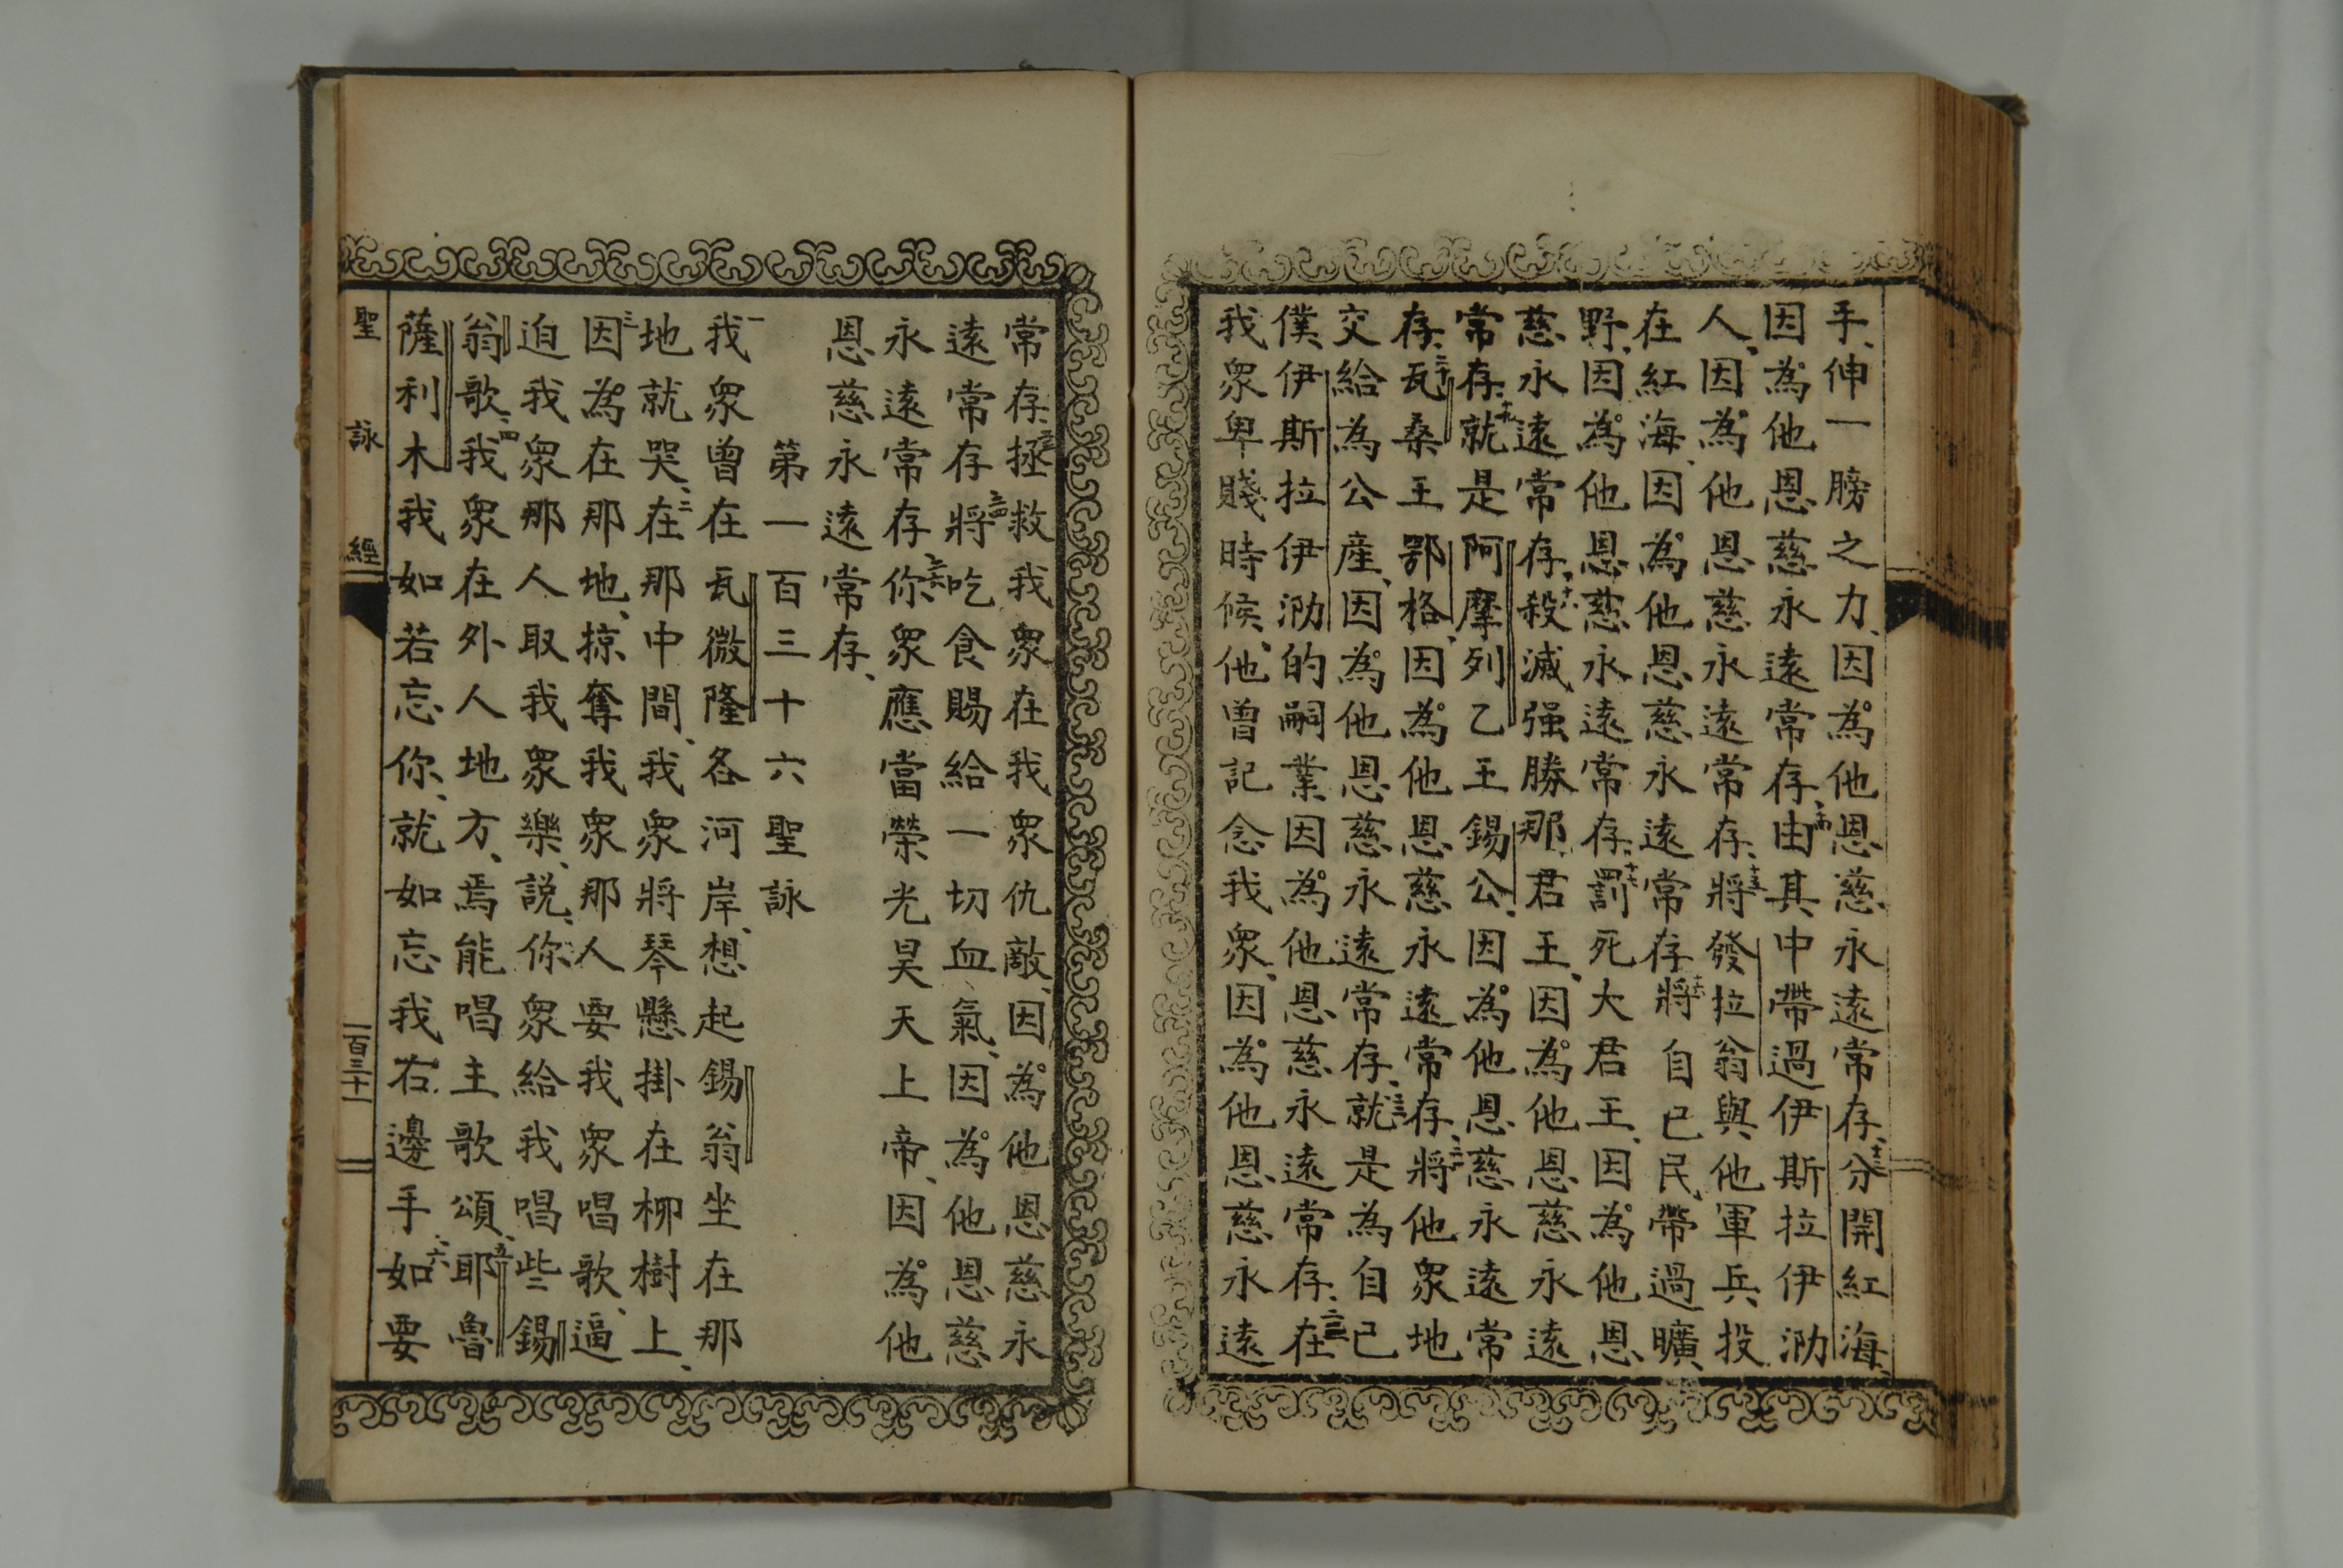 手、伸一膀之力、因為他恩慈永遠常存、十三分開紅海、
因為他恩慈永遠常存、十四由其中帶過伊斯拉伊泐
人、因為他恩慈永遠常存、十五將發拉翁與他軍兵投
在紅海、因為他恩慈永遠常存、十六將自己民、帶過曠
野、因為他恩慈永遠常存、十七罰死大君王、因為他恩
慈永遠常存、十八殺滅强勝那君王、因為他恩慈永遠
常存、十九就是阿摩列乙王錫公、因為他恩慈永遠常
存、二十瓦桑王鄂格、因為他恩慈永遠常存、二一將他眾地
交給為公產、因為他恩慈永遠常存、二二就是為自己
僕、伊斯拉伊泐的嗣業因為他恩慈永遠常存、二三在
我眾卑賤時候、他曾記念我眾、因為他恩慈永遠
常存、二四拯救我眾在我眾仇敵、因為他恩慈永
遠常存、二五將吃食賜給一切血氣、因為他恩慈
永遠常存、二六你眾應當榮光昊天上帝、因為他
恩慈永遠常存、
第一百三十六聖詠
一我眾曾在瓦微隆各河岸、想起錫翁坐在那
地就哭、二在那中間、我眾將琴懸掛在柳樹上、
三因為在那地、掠奪我眾那人要我眾唱歌、逼
迫我眾那人取我眾樂、說、你眾給我唱些錫
翁歌、四我眾在外人地方、焉能唱主歌頌、五耶魯
薩利木我如若忘你、就如忘我右邊手、六如要
聖詠經
一百三十一